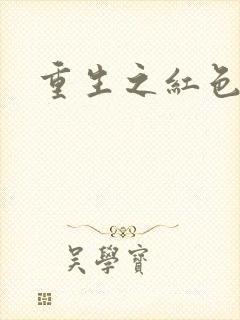 重生之紅色
吴學寶